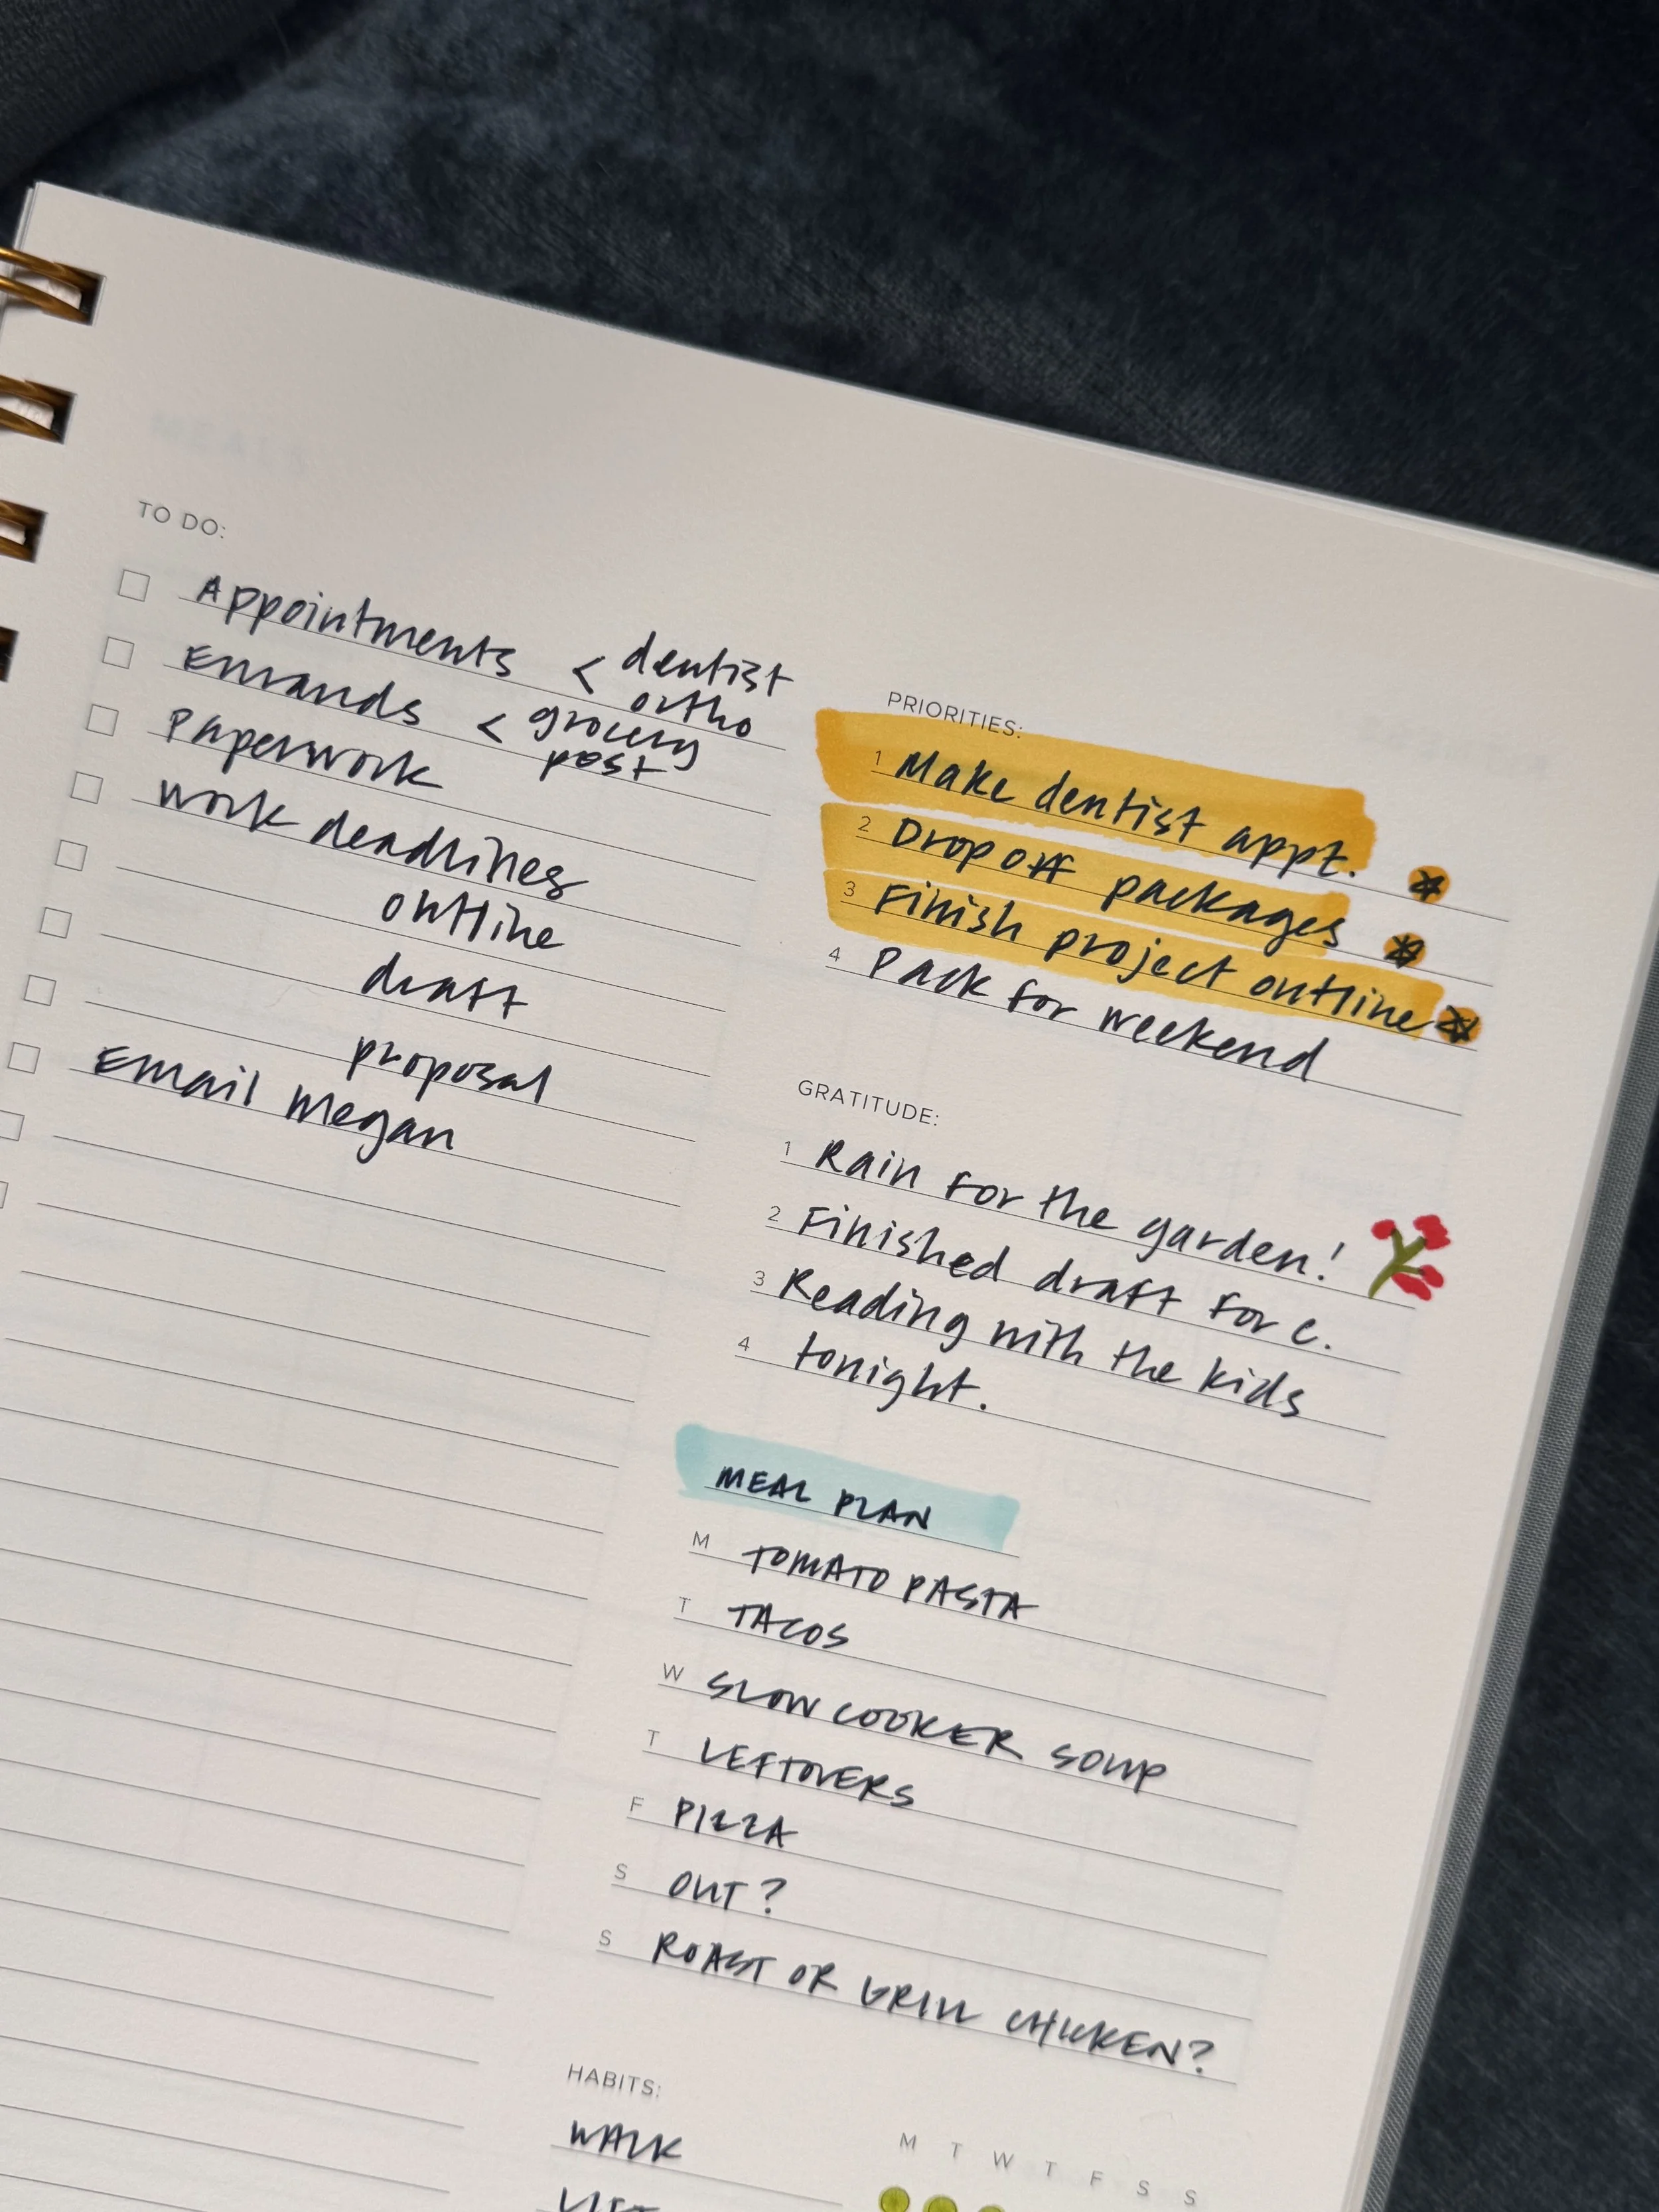 TO DO:
Appointments < dentist
ortho
Errands < grocery
post
Paperwork
work deadlines
outline
draft
proposal
Email Megan
PRIORITIES:
1 Make dentist appt.
2 Drop off packages
3 Finish project outline
4 Pack for weekend
GRATITUDE:
1 Rain for the garden!
2 Finished draft for c.
3 Reading with the kids
4 tonight.
MEAL PLAN
M TOMATO PASTA
T TACOS
W SLOW COOKER SOUP
T LEFTOVERS
F PIZZA
S OUT?
S ROAST OR GRILL CHICKEN?
HABITS:
M T W T F S S
WALK